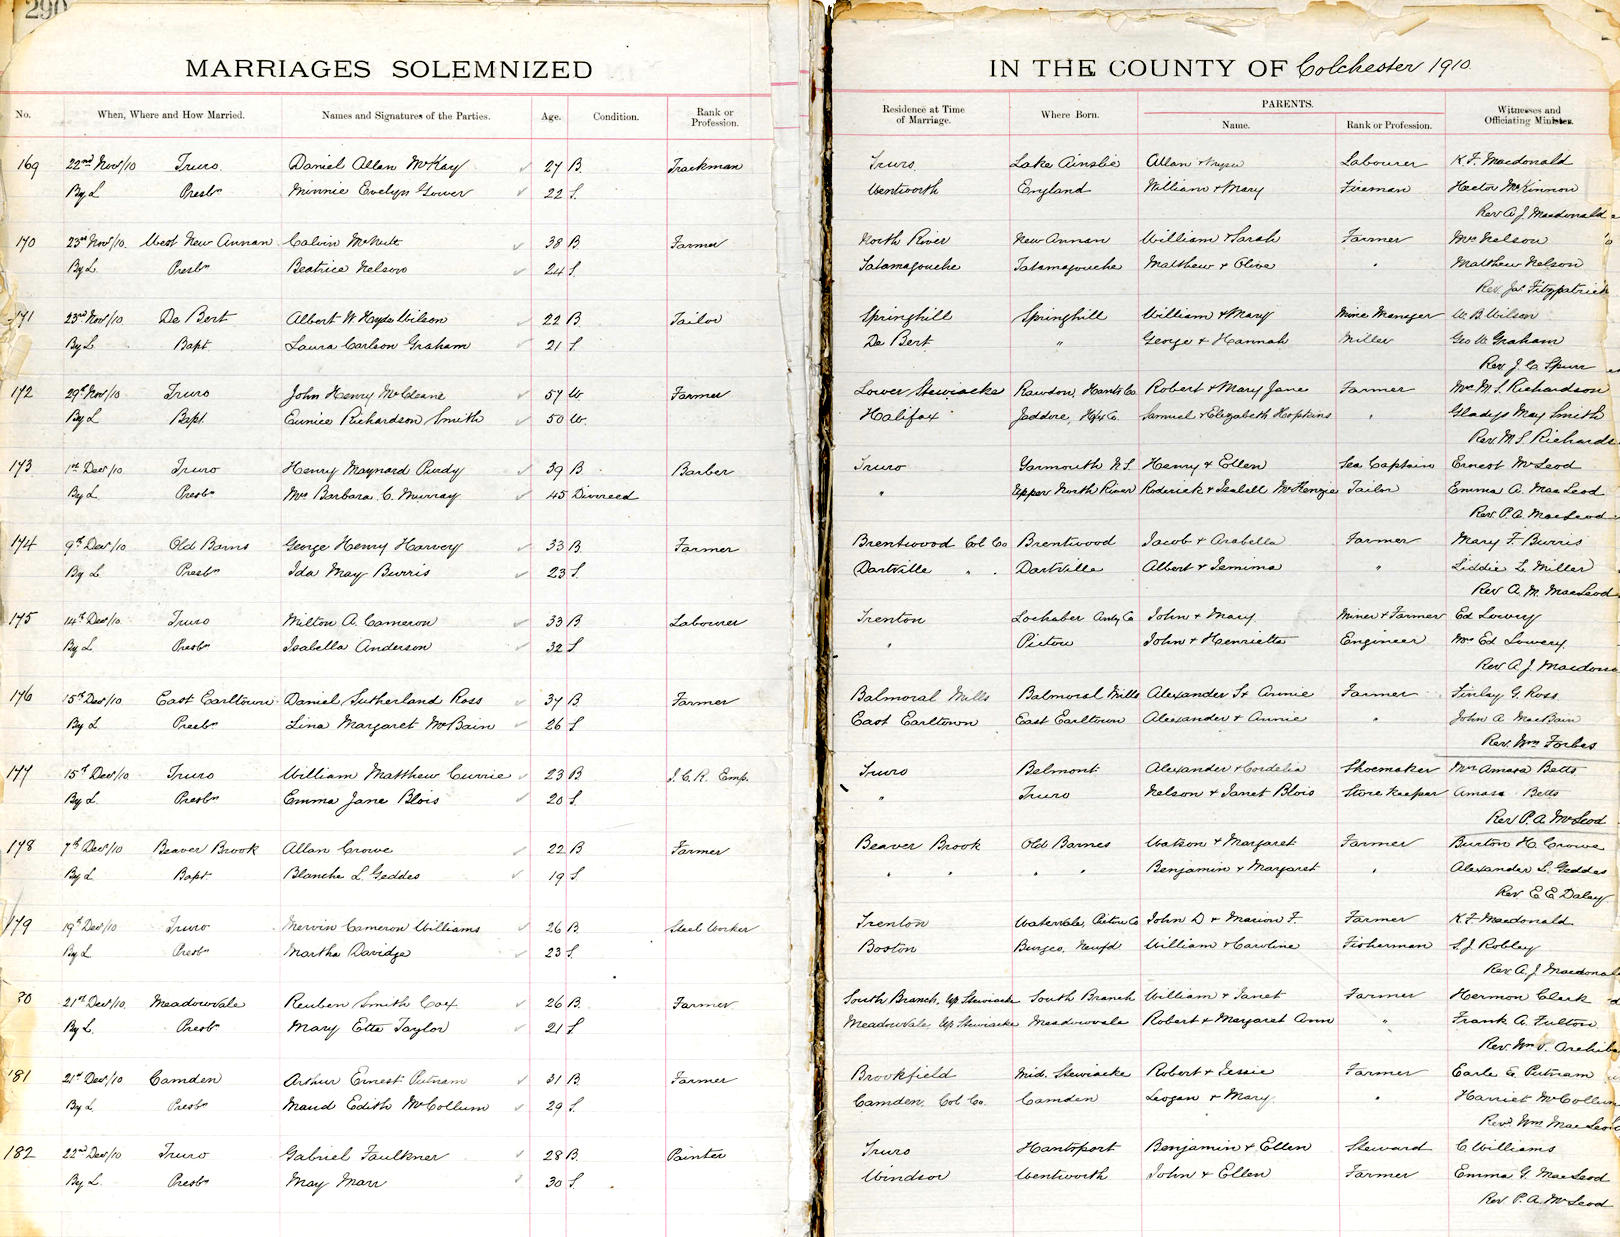 290
MARRIAGES SOLEMNIZED IN THE COUNTY OF Colchester 1910
No. When, Where and How Married. Names and Signatures of the Parties. Age. Condition. Rank or Profession. Residence at Time of Marriage. Where Born. PARENTS. Name. Rank or Profession. Witnesses and Officiating Minister.
169 22nd Nov/10 Truro Daniel Allan McKay 27 B. Trackman Truro Lake Ainslie Allan + Labourer K. F. Macdonald
By L Presbn Minnie Evelyn Gower 22 S. Wentworth England William + Mary Fireman Hector McKinnon
Rev A. J. Macdonald
170 23rd Nov/10. West New Annan Calvin McNutt 38 B. Farmer North River New Annan William + Sarah Farmer Mrs Nelson
By L. Presbn Beatrice Nelson 24 S. Tatamagouche Tatamagouche Matthew + Olive " Matthew Nelson
Rev. Jas Fitzpatrick
171 23rd Nov/10 De Bert Albert W. Hyde Wilson 22 B. Tailor Springhill Springhill William + Mary Mine Manager W. B. Wilson
By L Bapt Laura Carlson Graham 21 S. De Bert " George + Hannah Miller Geo W. Graham
Rev. J. C. Spurr
172 29th Nov/10 Truro John Henry McCleane 57 W. Farmer Lower Stewiacke Rawdon, Hants Co. Robert + Mary Jane Farmer Mrs M. S. Richardson
By L Bapt. Eunice Richardson Smith 50 W. Halifax Jaddore, Hfx Co. Samuel + Elizabeth Hopkins " Gladys May Smith
Rev. M S Richards
173 1st Dec/10 Truro Henry Maynard Purdy 39 B Barber Truro Yarmouth N.S. Henry + Ellen Sea Captain Ernest McLeod
By L Presbn Mrs Barbara C. Murray 45 Divorced " Upper North River Roderick + Isabell McKenzie Tailor Emma A. MacLeod
Rev. P. A. MacLeod
174 9th Dec/10 Old Barns George Henry Harvey 33 B Farmer Brentwood Col Co Brentwood Jacob + Arabella Farmer Mary F. Burris
By L Presbn Ida May Burris 23 S. Dartville " . Dartville Albert + Jemima " Liddie L. Miller
Rev A. M. MacLeod
175 14th Dec/10 Truro Milton A. Cameron 33 B Labourer Trenton Lochaber Anty Co John + Mary Miner + Farmer Ed Lowery
By L. Presbn Isabella Anderson 32 S " Pictou John + Henrietta Engineer Mrs Ed Lowery
Rev A. J. Macdona
176 15th Dec/10 East Earltown Daniel Sutherland Ross 37 B Farmer Balmoral Mills Balmoral Mills Alexander S + Annie Farmer Finlay G. Ross
By L. Presbn Lina Margaret McBain 26 S East Earltown East Earltown Alexander + Annie " John A MacBain
Rev. Wm Forbes
177 15th Dec/10 Truro William Matthew Currie 23 B I. C. R. Emp. Truro Belmont Alexander + Cordelia Shoemaker Mrs Amasa Betts
By L. Presbn Emma Jane Blois 20 S. " Truro Nelson + Janet Blois Store keeper Amasa Betts
Rev P. A. McLeod
178 7th Dec/10 Beaver Brook Allan Crowe 22 B Farmer Beaver Brook Old Barnes Watson + Margaret Farmer Burton H. Crowe
By L. Bapt. Blanche L Geddes 19 S. " " " " Benjamin + Margaret " Alexander L. Geddes
Rev E. E Daley
179 19th Dec/10 Truro Mervin Cameron Williams 26 B Steel Worker Trenton Watervale, Pictou Co John D + Marion F. Farmer K. F. Macdonald
By L. Presbn Martha Davidge 23 S. Boston Burgeo, Newfd William + Caroline Fisherman S. J. Robley
Rev. A. J. Macdonal
80 21st Dec/10. Meadowvale Reuben Smith Cox 26 B. Farmer South Branch, Up Stewiacke South Branch William + Janet Farmer Hermon Clark
By L. Presbn Mary Etta Taylor 21 S Meadowvale, Up Stewiacke Meadowvale Robert + Margaret Ann " Frank A. Fulton
Rev. Wm. Archiba
181 21st Dec/10 Camden Arthur Ernest Putnam 31 B. Farmer Brookfield Mid. Stewiacke Robert + Jessie Farmer Earle G. Putnam
By L. Presbn Maud Edith McCollum 29 S. Camden, Col Co. Camden Logan + Mary " Harriet McCollum
Rev. Wm MacLeod
182 22nd Dec/10 Truro Gabriel Faulkner 28 B. Painter Truro Hantsport Benjamin + Ellen Steward C Williams
By L. Presbn May Marr 30 S. Windsor Wentworth John + Ellen Farmer Emma G. MacLeod
Rev. P. A. McLeod